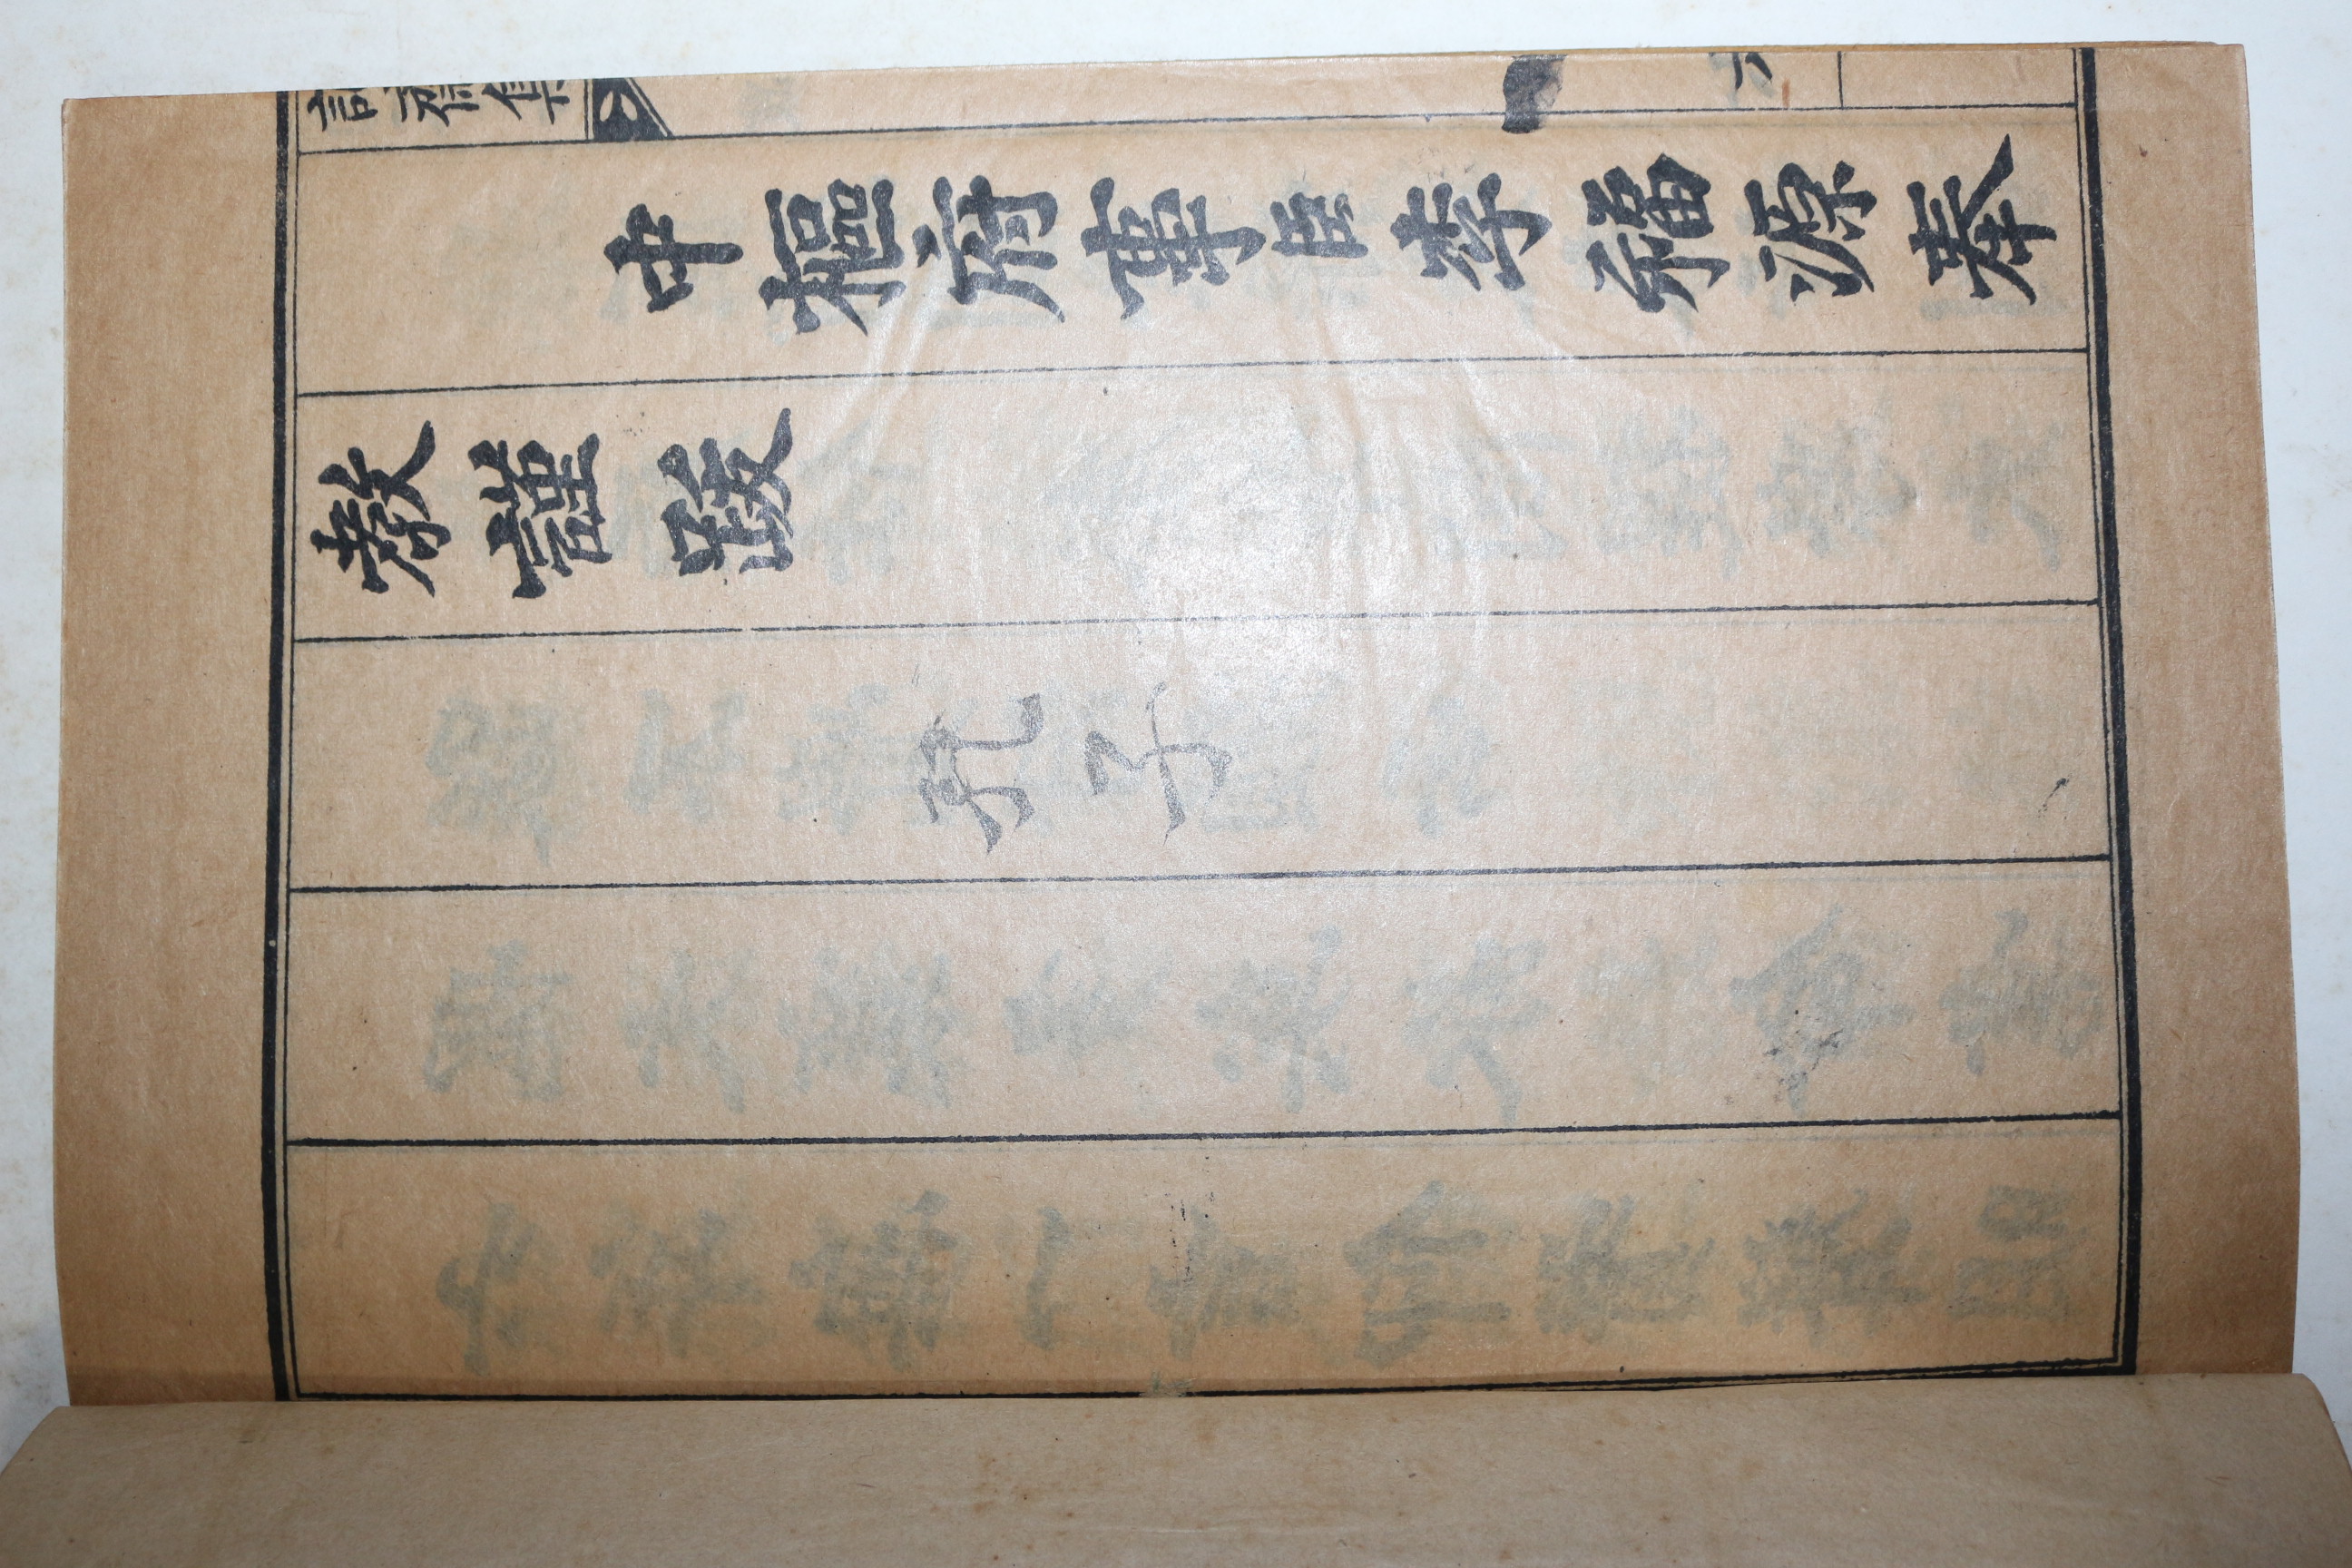 齋集
六
中樞府事臣李福源奉
敎謹跋
孔子